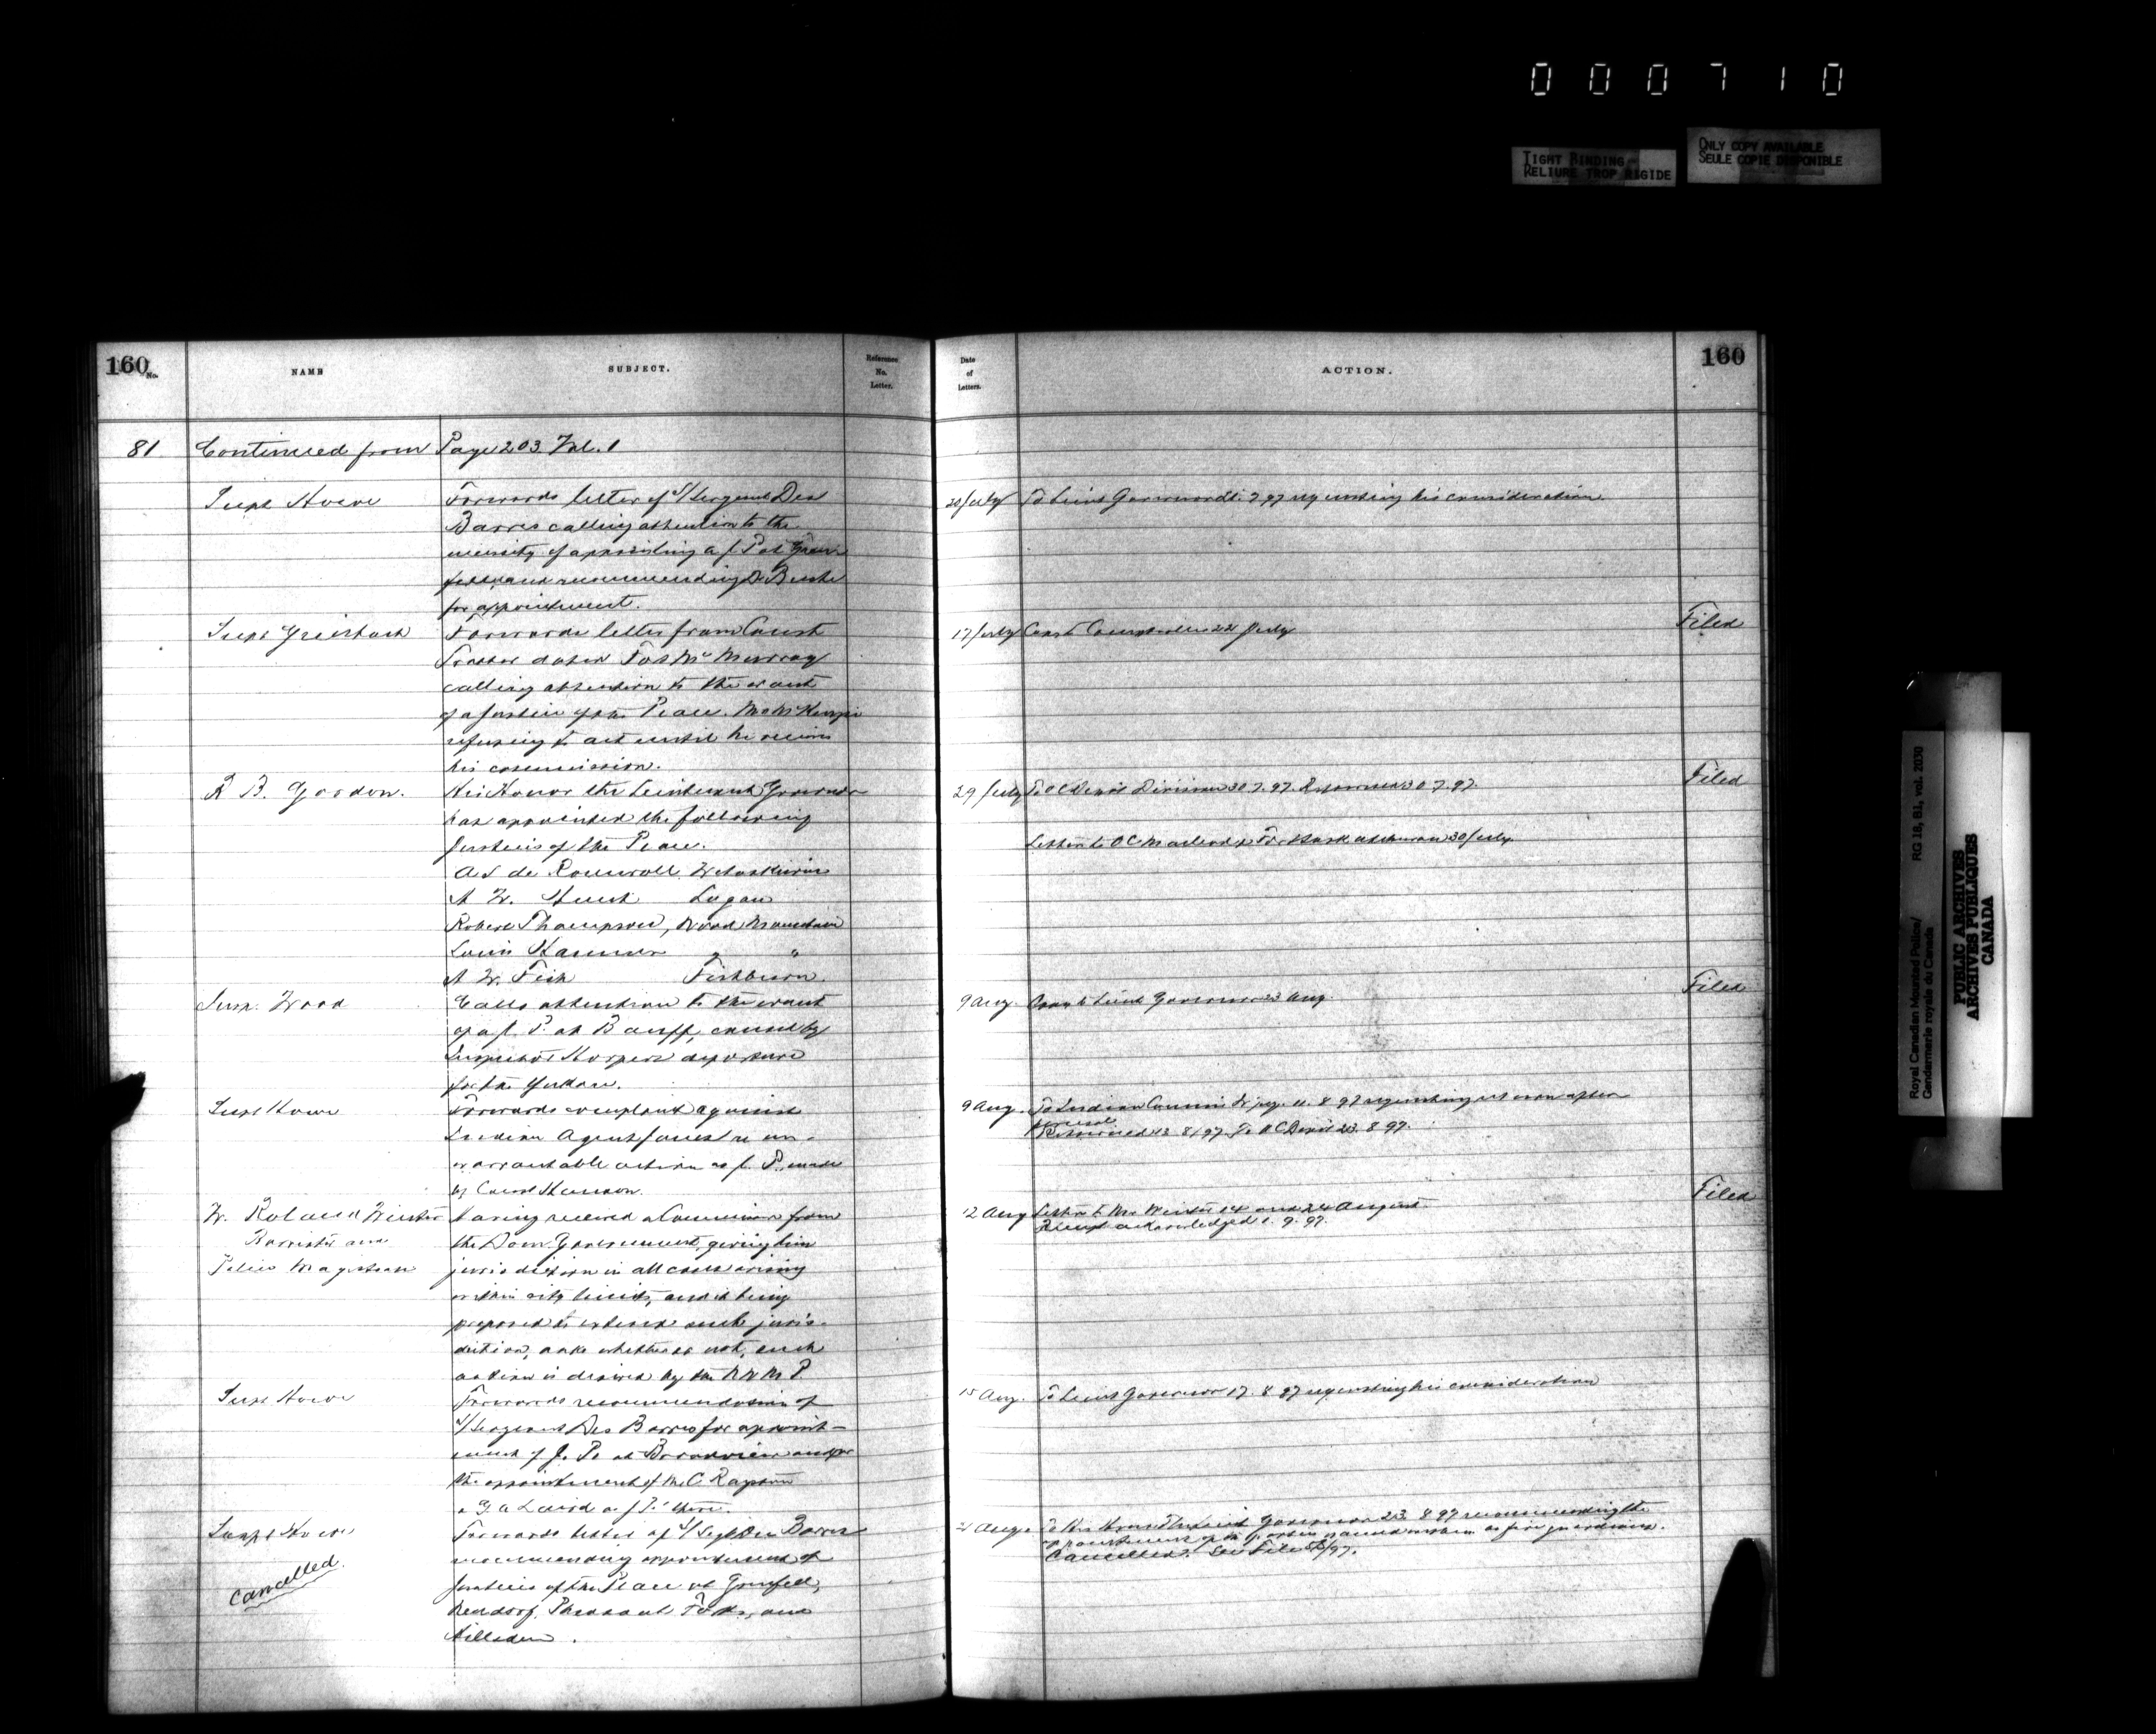 000710
TIGHT BINDING
RELIURE TROP RIGIDE
ONLY COPY AVAILABLE
SEULE COPIE DISPONIBLE
160
No.
NAME
SUBJECT.
Reference
No.
Letter.
Date
of
Letters.
ACTION.
160
81 Continued from Page 203 Vol. 1
Supt Howe
Forwards letter of S/Sergeant Des
Barres calling attention to the
necessity of appointing a J P at Gren
fell and recommending
for appointment.
20 July To Lieut Governor 7.97 requesting his consideration
Supt Griesbach
Forwards letter from Const
dated Fort McMurray
calling attention to the want
of a Justice of the Peace. Mr McKenzie
refusing to act until he receives
his commission.
17 July 22 July
Filed
R B. Gordon.
His Honor the Lieutenant Governor
has appointed the following
Justices of the Peace.
Wetaskiwin
A W. Hunt Logan
Robert Thompson, Wood Mountain
Louis " "
A W. Fish Fishburn
29 July To OC Depot Division 30.7.97. Returned 30 7.97.
Letter to OC Macleod & Fort Saskatchewan 30 July
Filed
Supt. Wood
Calls attention to the want
of a J. P. at Banff, caused by
Inspector Harpers departure
for the Yukon.
9 Aug. Lieut Governor 23 Aug.
Filed
Supt Howe
Forwards complaint against
Indian Agent re un-
warrantable action as J. P. made
by
9 Aug. To Indian Commis Wpg. 11. 8 97 requesting return after
perusal
Returned 13 8/97. To OC Depot 23. 8 97.
W. Roland Winter
Barrister and
Police Magistrate
having received a Commission from
the Dom. Government, giving him
jurisdiction in all cases arising
within city limits, and it being
proposed to extend such juris-
diction, asks whether or not, such
action is desired by the N W M P
12 Aug Letter to Mr Winter 14 and 24 August.
Receipt acknowledged 1. 9. 97.
Filed
Supt Howe
Forwards recommendation of
S/Sergeant Des Barres for appoint-
ment of J. Ps at Broadview and for
the appointment of
Laird as J P. there.
15 Aug. To Lieut Governor 17. 8 97 requesting his consideration
Supt Howe
Cancelled.
Forwards letter of S/Sergt Des Barres
recommending appointment of
Justices of the Peace at Grenfell,
Neudorf, Pheasant Forks, and
21 Aug. To His Honor The Lieut Governor 23 8 97 recommending the
appointment of within as fire guardians.
Cancelled. See File
Royal Canadian Mounted Police/
Gendarmerie royale du Canada
RG 18, B1, vol. 2030
PUBLIC ARCHIVES
ARCHIVES PUBLIQUES
CANADA